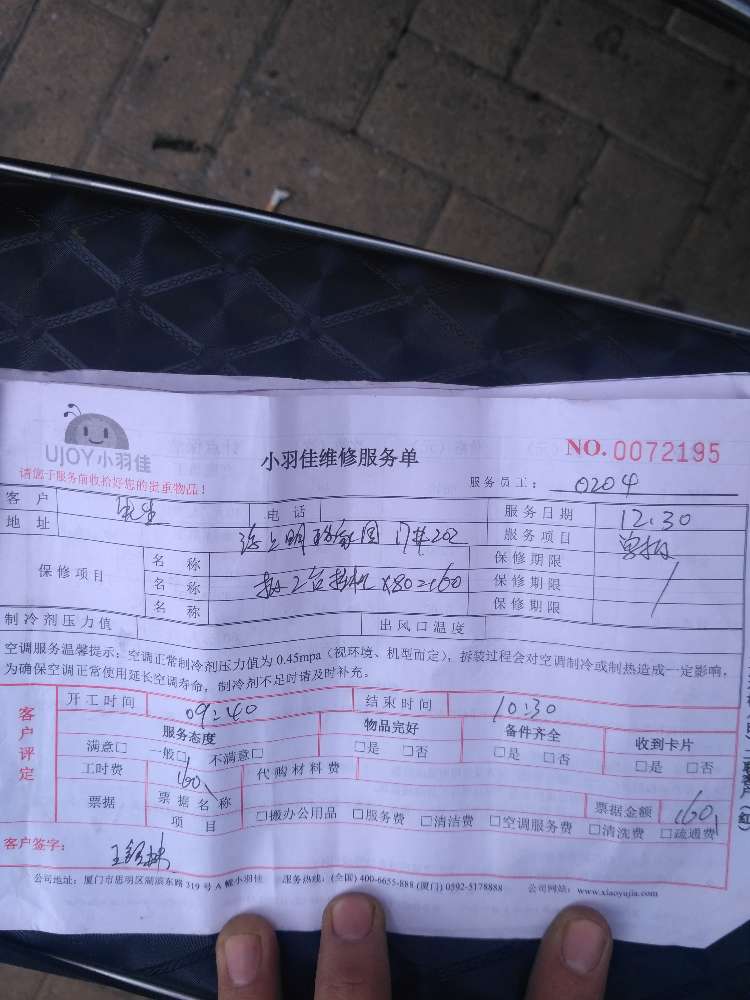 UJOY小羽佳
小羽佳维修服务单
NO. 0072195
请您于服务前收拾好您的贵重物品！
服务员工： 0204
客户 电话 服务日期 12.30
地址 202 服务项目 单拆
保修项目 名称 保修期限
名称 拆2台挂机 X80=160 保修期限
名称 保修期限
制冷剂压力值 出风口温度
空调服务温馨提示：空调正常制冷剂压力值为 0.45mpa（视环境、机型而定），拆装过程会对空调制冷或制热造成一定影响，
为确保空调正常使用延长空调寿命，制冷剂不足时请及时补充。
客户评定
开工时间 09:40 结束时间 10:30
服务态度 物品完好 备件齐全 收到卡片
满意□ 一般□ 不满意□ □是 □否 □是 □否 □是 □否
工时费 160 代购材料费
票据 票据名称 票据金额 160
项目 □搬办公用品 □服务费 □清洁费 □空调服务费 □清洗费 □疏通费
客户签字：
公司地址：厦门市思明区湖滨东路 319 号 A 幢小羽佳 服务热线：(全国) 400-6655-888 (厦门) 0592-5178888 公司网站：www.xiaoyujia.com